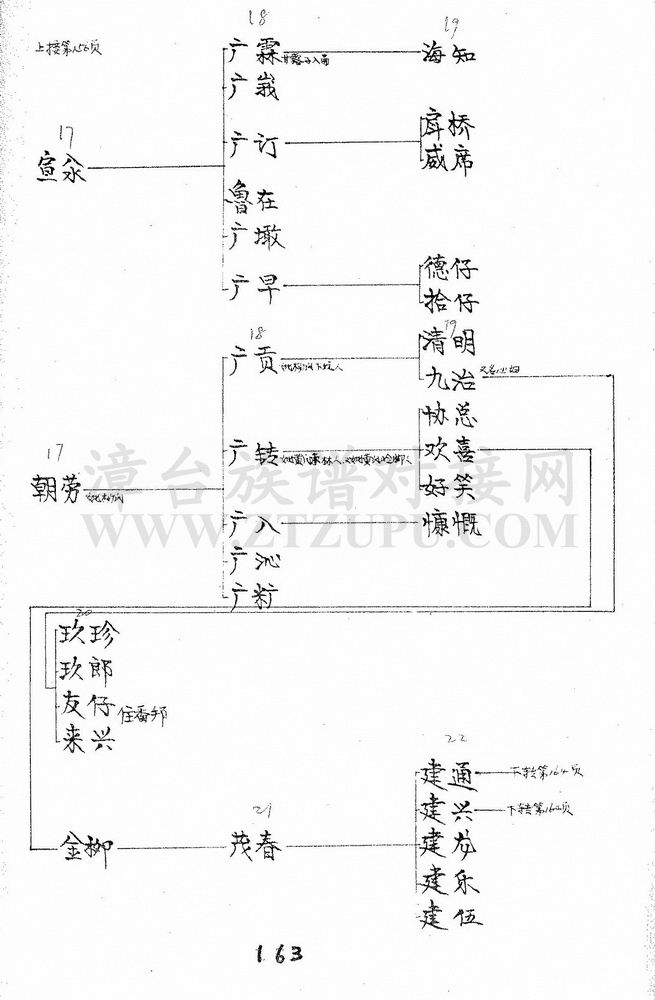 上接第156页
18
19
广霖
海知
广峩
广订
房桥
威席
17
宣永
鲁在
广墩
广早
德仔
拾仔
18
19
广贡
清明
九治
广转
协总
欢喜
好笑
17
朝劳
广入
慷慨
广沁
广籵
漳台族谱对接网
WWW.ZTZUPU.COM
20
玖珍
玖郎
友仔 住番邦
来兴
22
建通 下转第164页
建兴 下转第164页
21
金柳
茂春
建龙
建乐
建伍
163